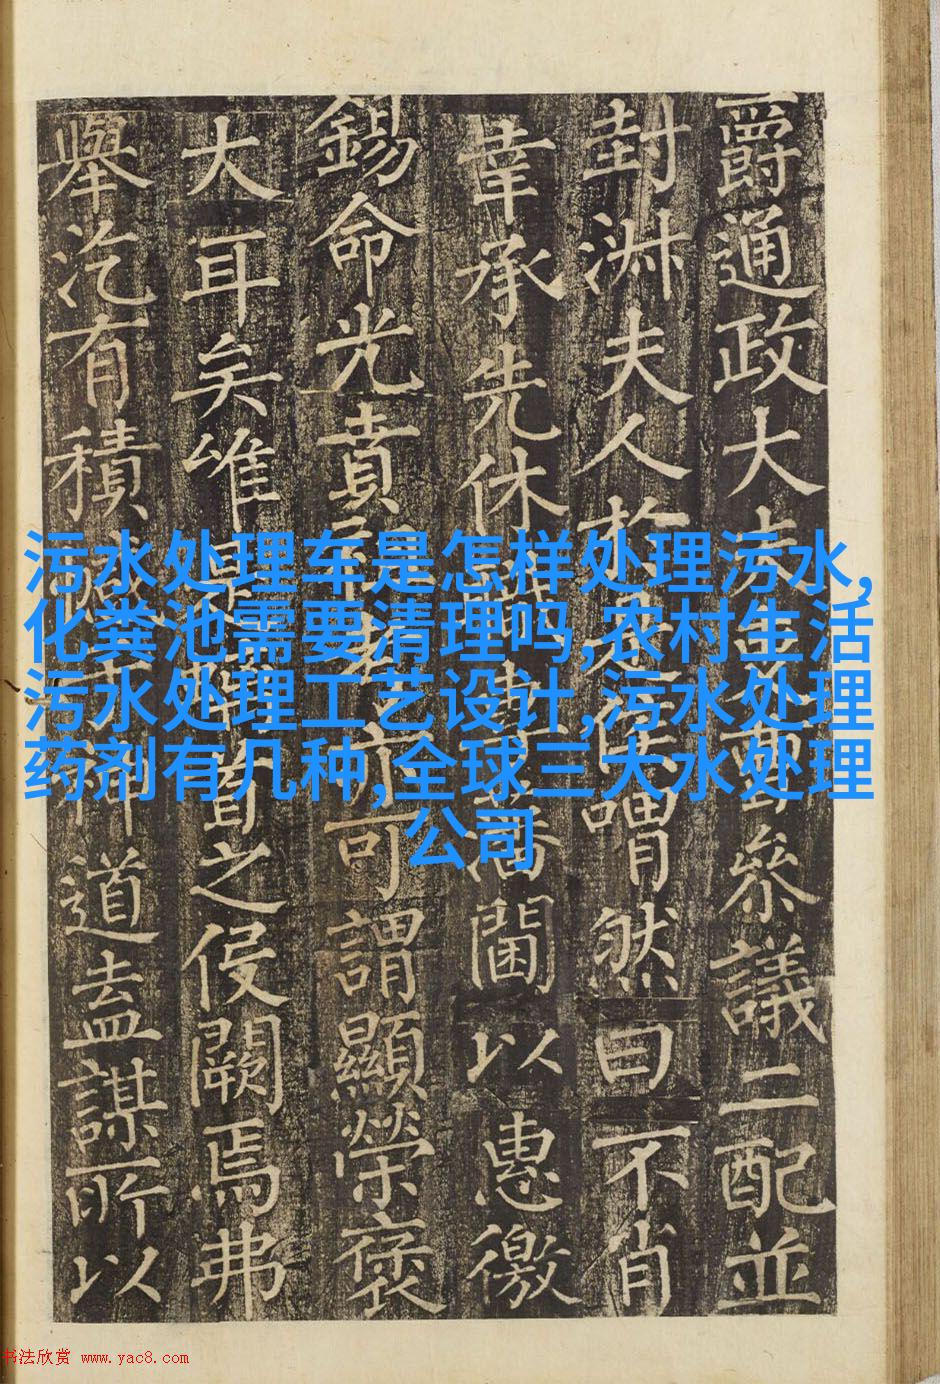 爵通政大參議二配並
封淑夫人於喟然曰不肖
幸承先休藩閫以惠徼
錫命光賁可謂顯榮褒
大耳矣唯是之侵闕焉弗
舉汔有積神道盍謀所以
污水处理车是怎样处理污水,
化粪池需要清理吗,农村生活
污水处理工艺设计,污水处理
药剂有几种,全球三大水处理
公司
书法欣赏 www.yac8.com